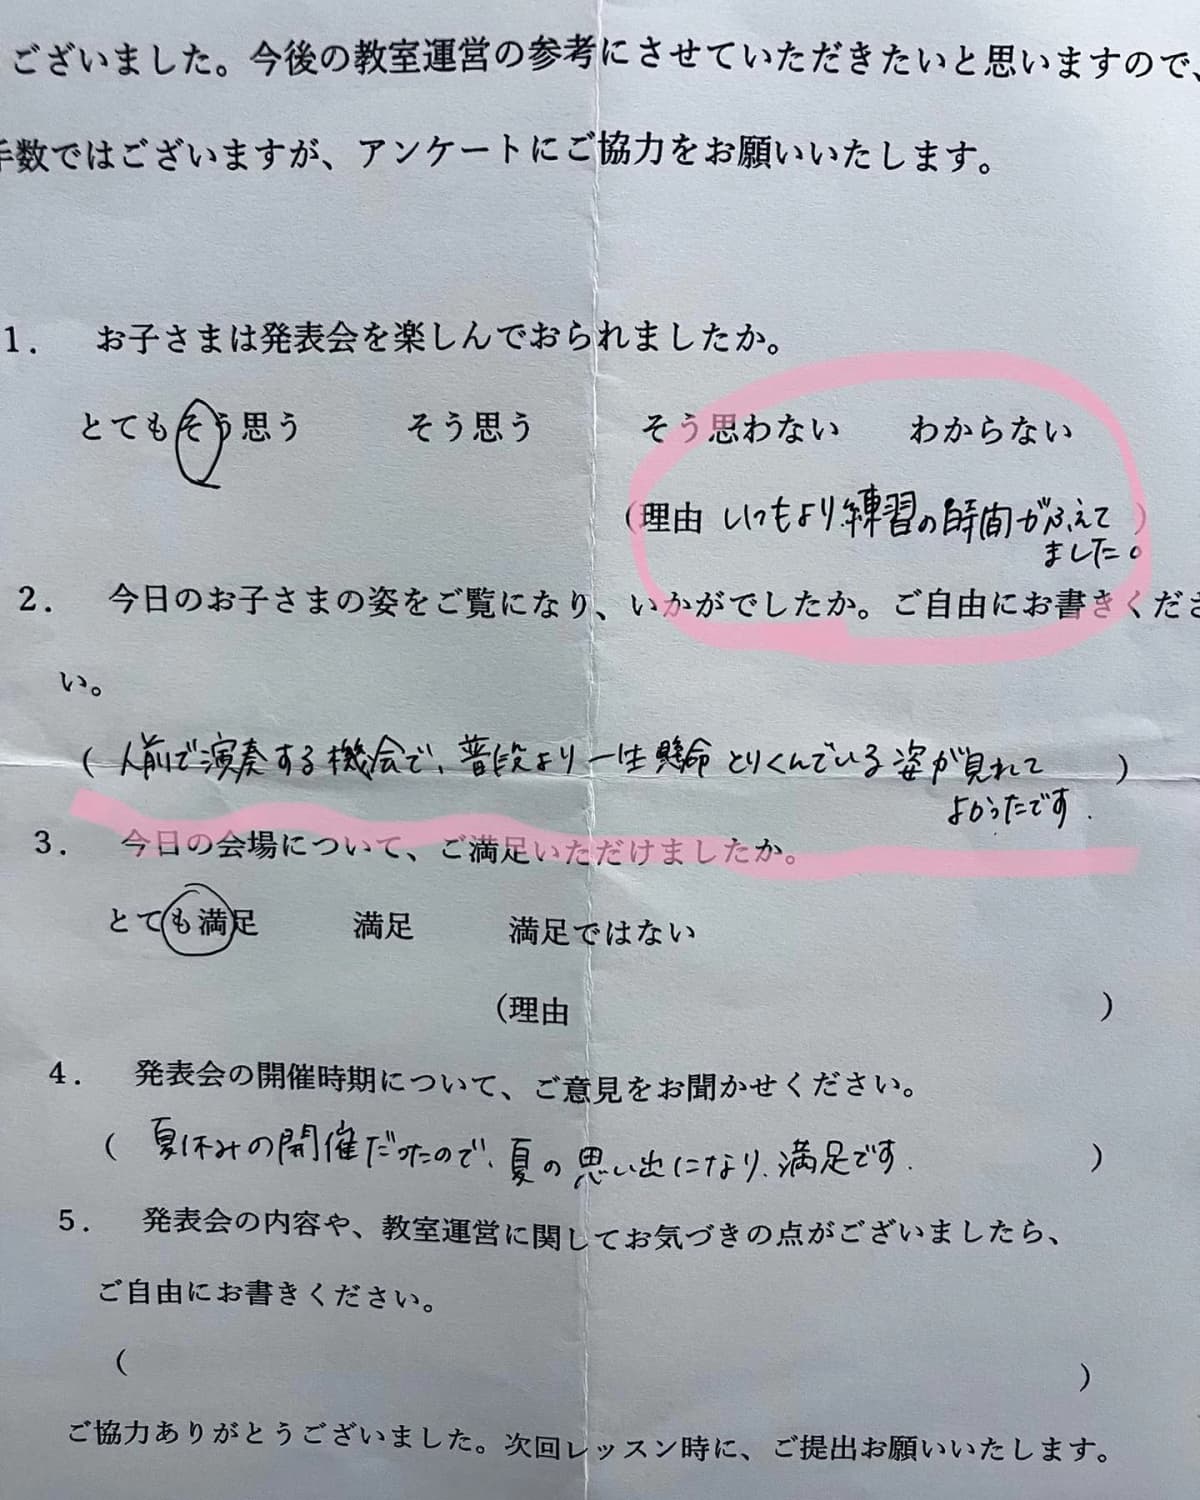 ございました。今後の教室運営の参考にさせていただきたいと思いますので、
手数ではございますが、アンケートにご協力をお願いいたします。
1. お子さまは発表会を楽しんでおられましたか。
とてもそう思う そう思う そう思わない わからない
(理由 いつもより練習の時間がふえて )
ました。
2. 今日のお子さまの姿をご覧になり、いかがでしたか。ご自由にお書きくださ
い。
( 人前で演奏する機会で、普段より一生懸命とりくんでいる姿が見れて )
よかったです.
3. 今日の会場について、ご満足いただけましたか。
とても満足 満足 満足ではない
(理由 )
4. 発表会の開催時期について、ご意見をお聞かせください。
( 夏休みの開催だったので、夏の思い出になり、満足です. )
5. 発表会の内容や、教室運営に関してお気づきの点がございましたら、
ご自由にお書きください。
( )
ご協力ありがとうございました。次回レッスン時に、ご提出お願いいたします。